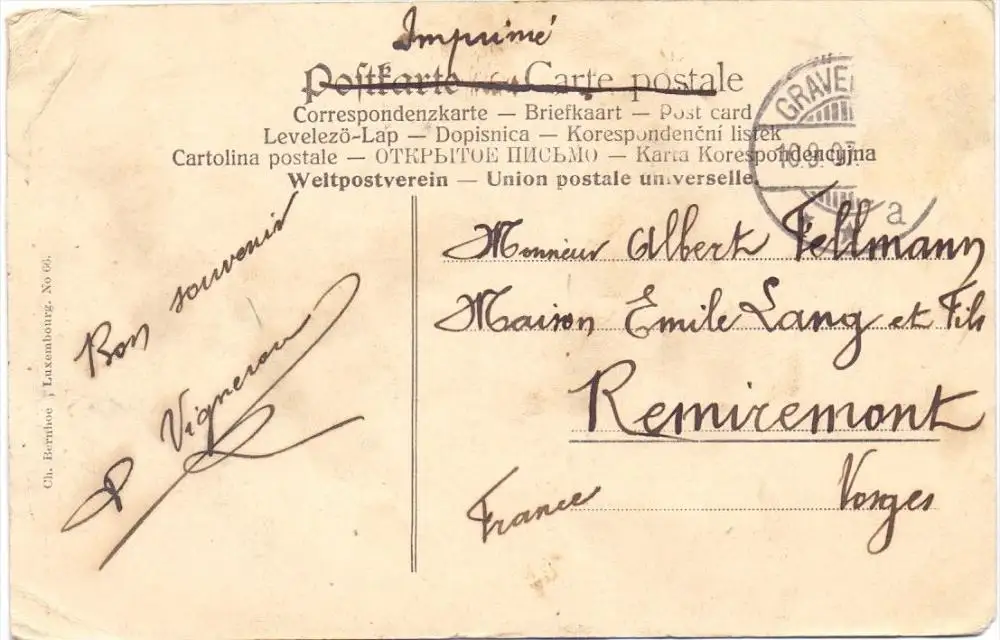 Imprimé
Postkarte — Carte postale
Correspondenzkarte — Briefkaart — Post card
Levelező-Lap — Dopisnica — Korespondenční lístek
Cartolina postale — ОТКРЫТОЕ ПИСЬМО — Karta Korespondencyjna
Weltpostverein — Union postale universelle.
GRAVE
a
Bon souvenir
P Vigneron
Monsieur Albert Fellmann
Maison Emile Lang et Fils
Remiremont
Vosges
France
Ch. Bernhoe , Luxembourg. No 66.